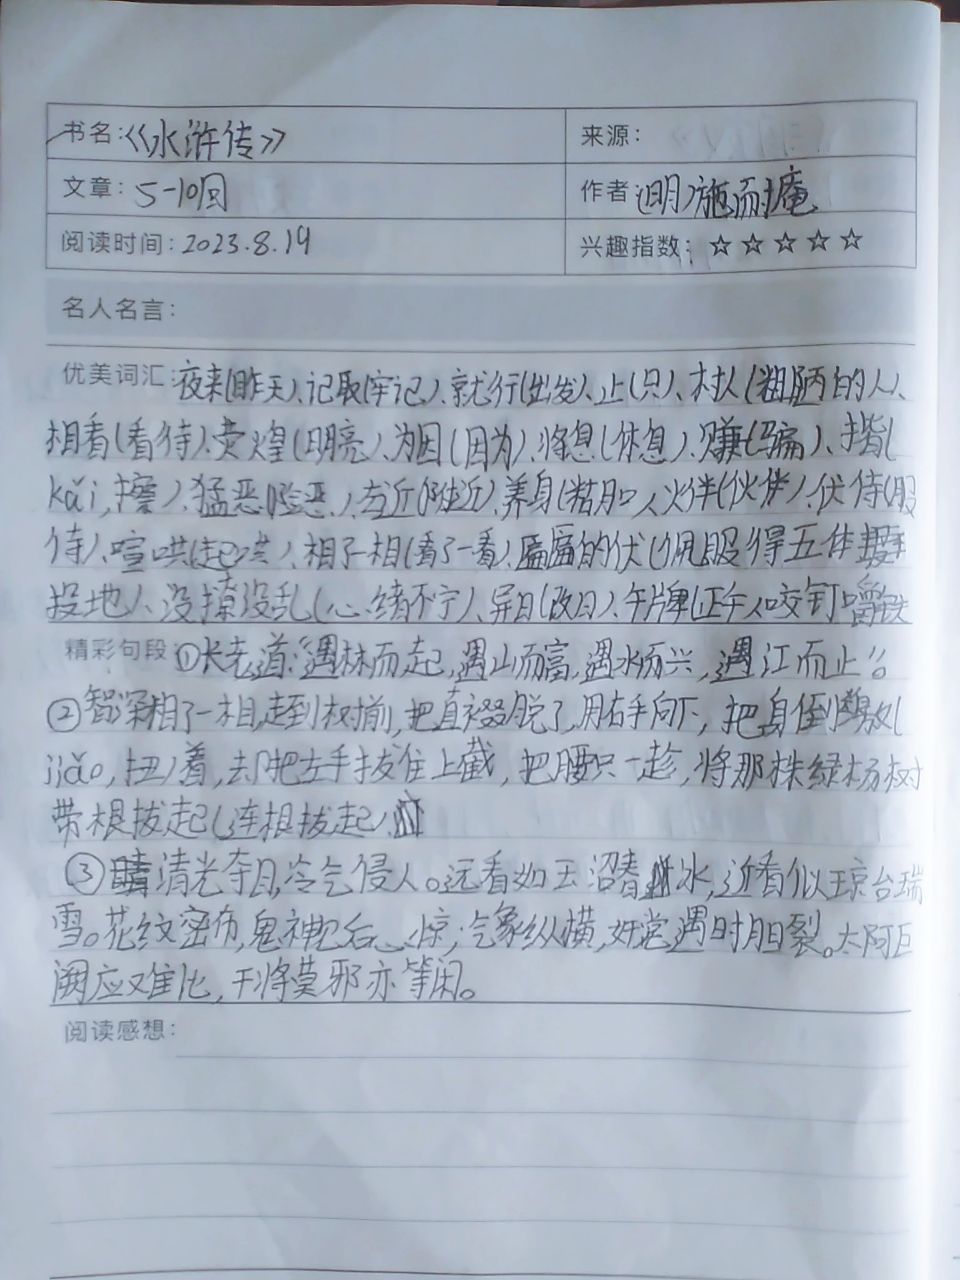 书名:《水浒传》 来源:
文章: 5-10回 作者:(明)施耐庵
阅读时间: 2023.8.19 兴趣指数: ☆☆☆☆☆
名人名言:
优美词汇:夜来(昨天)、记取(牢记)、就行(出发)、止(只)、村人(粗陋的人)、
相看(看待)、荧煌(明亮)、为因(因为)、将息(休息)、赚(骗)、揩(
kāi,擦)、猛恶(险恶)、左近(附近)、养身(粘月口人火伴(伙伴)、伏侍(服
侍)、喧哄(起哄)、相了一相(看了一看)、匾匾的伏(佩服得五体
投地)、没撩没乱(心绪不宁)、异日(改日)、午牌(正午)、咬钉嚼铁
精彩句段:①长老道:“遇林而起,遇山而富,遇水而兴,遇江而止”。
②智深相了一相,走到树前,把直裰脱了,用右手向下,把身倒缴(
jiǎo,扭)着,却把左手拔住上截,把腰只一趁,将那株绿杨树
带根拔起(连根拔起)。
③清光夺目,冷气侵人。远看如玉沼春冰,近看似琼台瑞
雪。花纹密布,鬼神见后心惊;气象纵横,奸党遇时胆裂。太阿巨
阙应难比,干将莫邪亦等闲。
阅读感想: